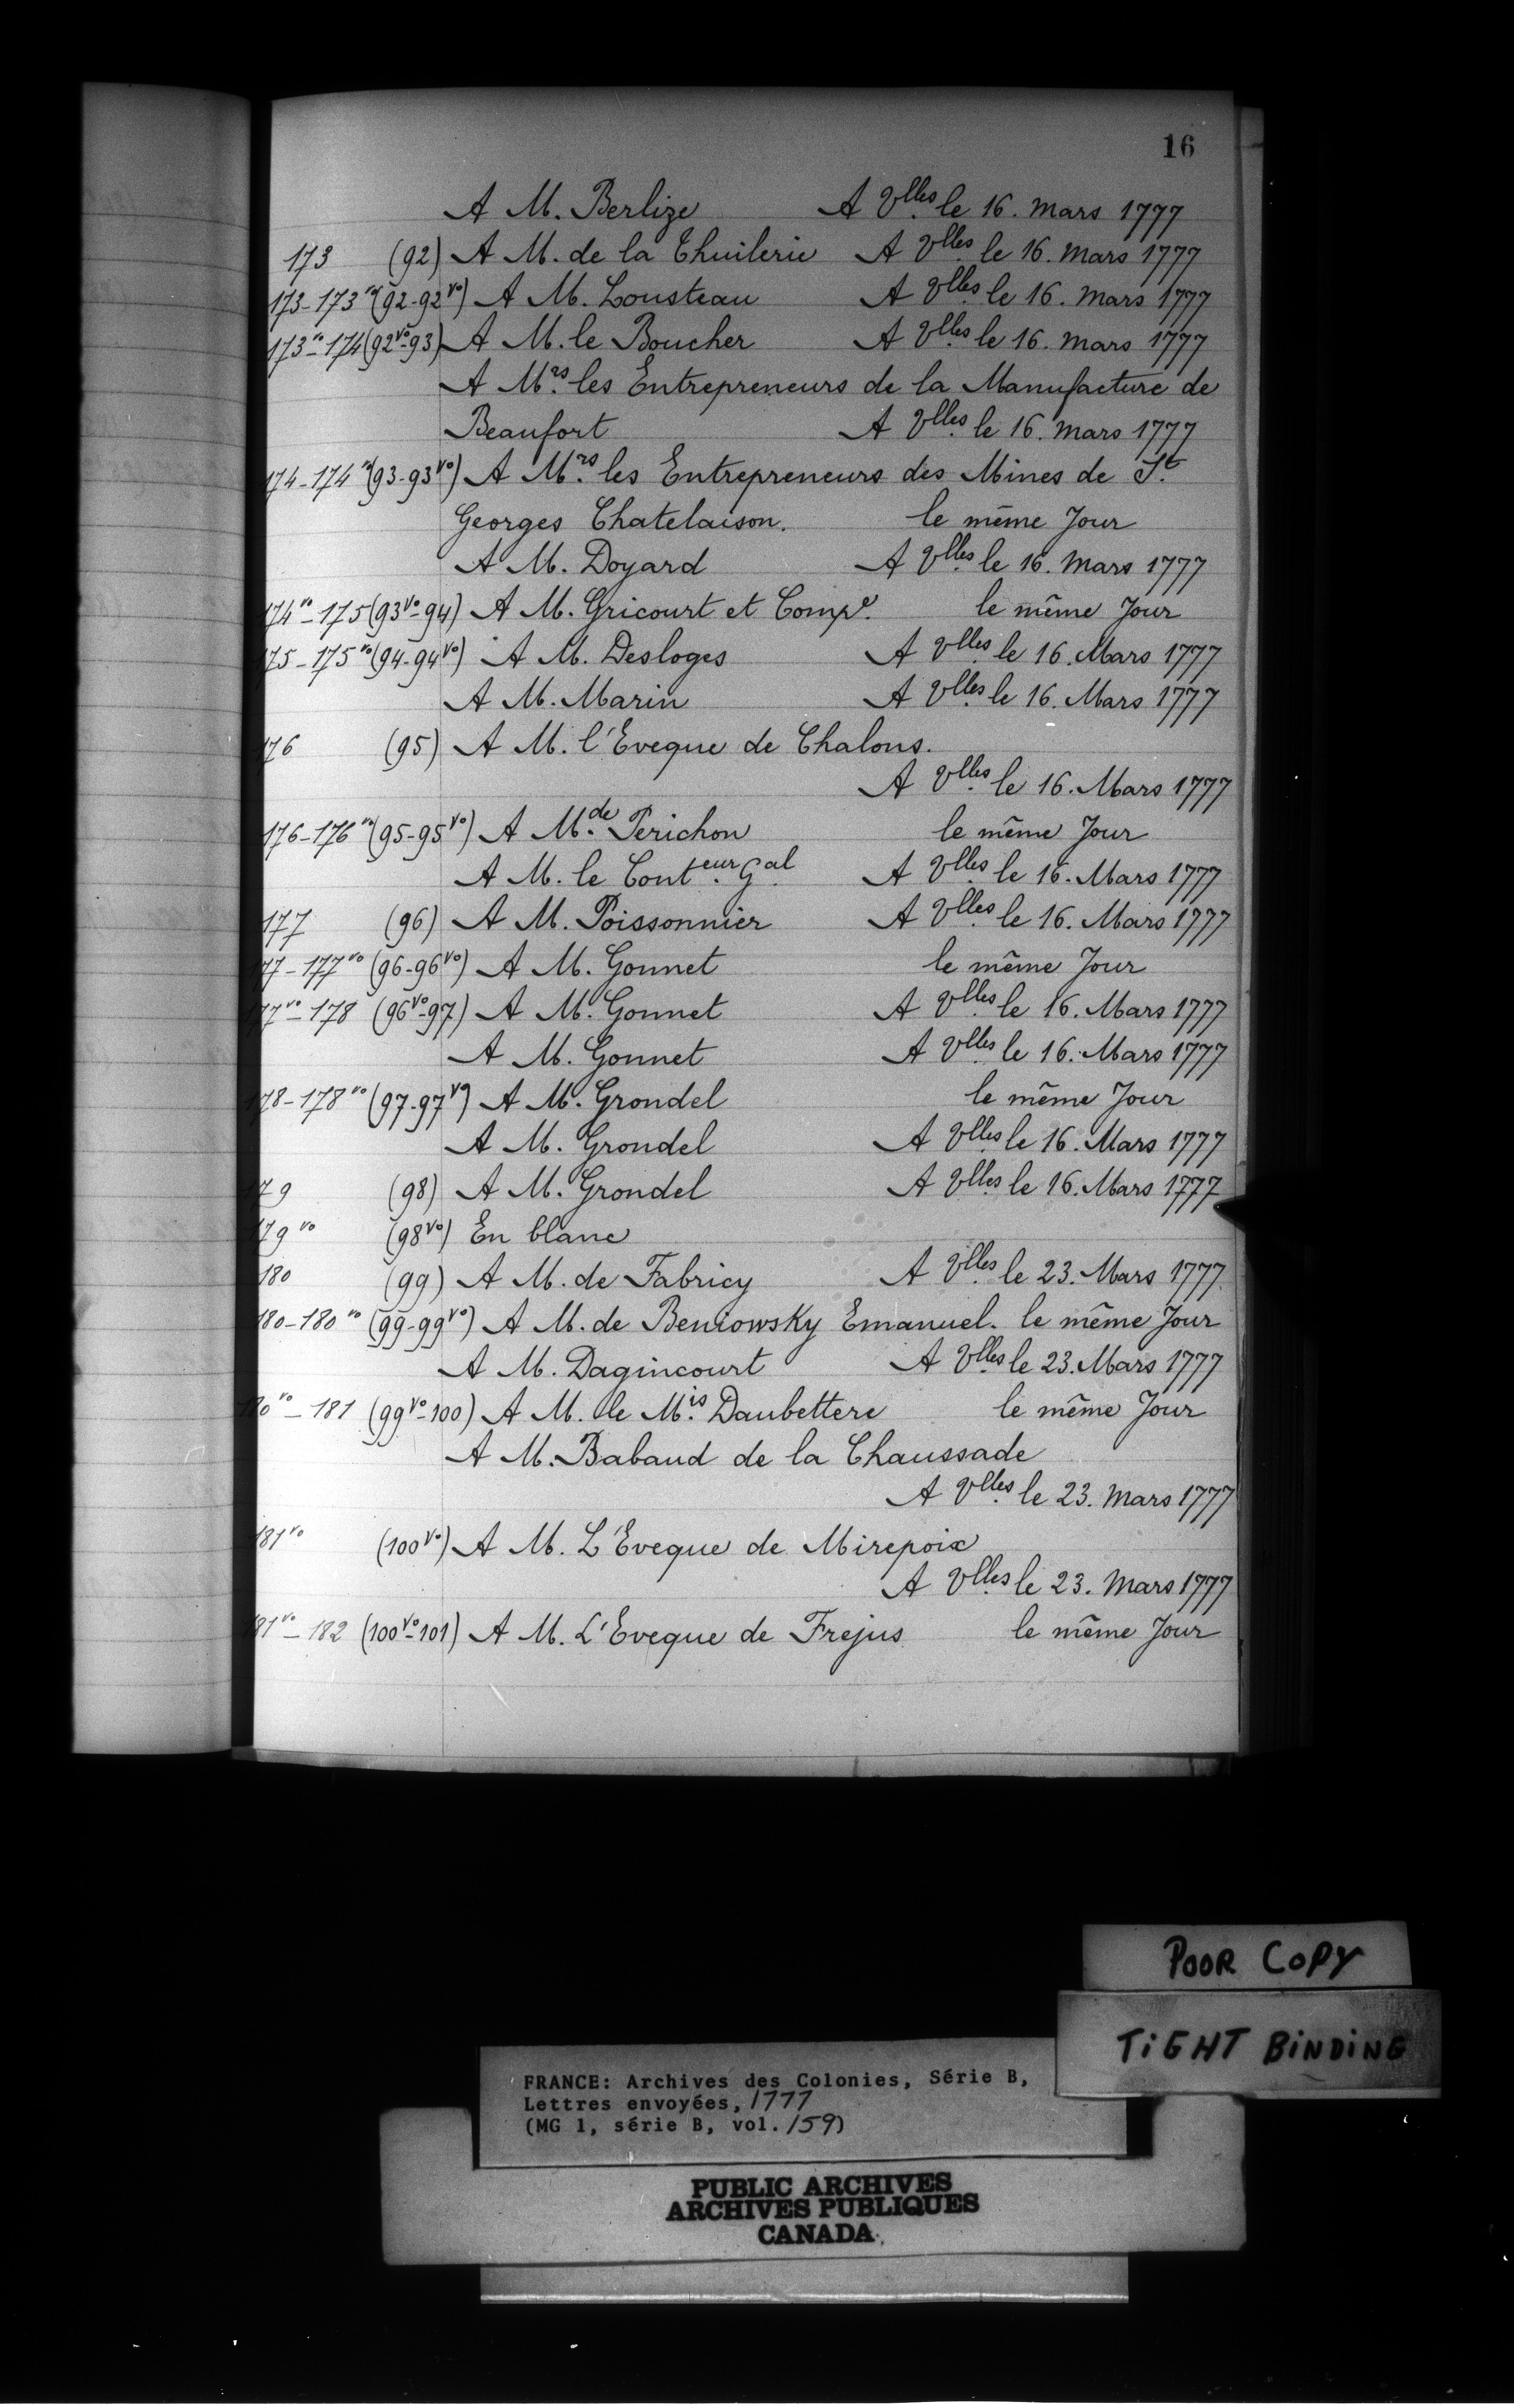 16
A M. Berlize A Vlles le 16. Mars 1777
173 (92) A M. de la Thuilerie A Vlles le 16. Mars 1777
173-173vo (92-92vo) A M. Lousteau A Vlles le 16. Mars 1777
173vo-174 (92vo-93) A M. le Boucher A Vlles le 16. Mars 1777
A Mrs les Entrepreneurs de la Manufacture de
Beaufort A Vlles le 16. Mars 1777
174-174vo (93-93vo) A Mrs les Entrepreneurs des Mines de St
Georges Chatelaison. le même Jour
A M. Doyard A Vlles le 16. Mars 1777
174vo-175 (93vo-94) A M. Gricourt et Compe. le même Jour
175-175vo (94-94vo) A M. Desloges A Vlles le 16. Mars 1777
A M. Marin A Vlles le 16. Mars 1777
176 (95) A M. l'Eveque de Chalons.
A Vlles le 16. Mars 1777
176-176vo (95-95vo) A Mde Perichon le même Jour
A M. le Conteur Gal A Vlles le 16. Mars 1777
177 (96) A M. Poissonnier A Vlles le 16. Mars 1777
77-177vo (96-96vo) A M. Gonnet le même Jour
77vo-178 (96vo-97) A M. Gonnet A Vlles le 16. Mars 1777
A M. Gonnet A Vlles le 16. Mars 1777
78-178vo (97-97vo) A M. Grondel le même Jour
A M. Grondel A Vlles le 16. Mars 1777
179 (98) A M. Grondel A Vlles le 16. Mars 1777
179vo (98vo) En blanc
180 (99) A M. de Fabricy A Vlles le 23. Mars 1777
180-180vo (99-99vo) A M. de Beniowsky Emanuel. le même Jour
A M. Dagincourt A Vlles le 23. Mars 1777
180vo-181 (99vo-100) A M. le Mis Daubettere le même Jour
A M. Babaud de la Chaussade
A Vlles le 23. Mars 1777
181vo (100vo) A M. L'Eveque de Mirepoix
A Vlles le 23. Mars 1777
181vo-182 (100vo-101) A M. L'Eveque de Frejus le même Jour
POOR COPY
TiGHT BiNDiNG
FRANCE: Archives des Colonies, Série B,
Lettres envoyées, 1777
(MG 1, série B, vol. 159)
PUBLIC ARCHIVES
ARCHIVES PUBLIQUES
CANADA